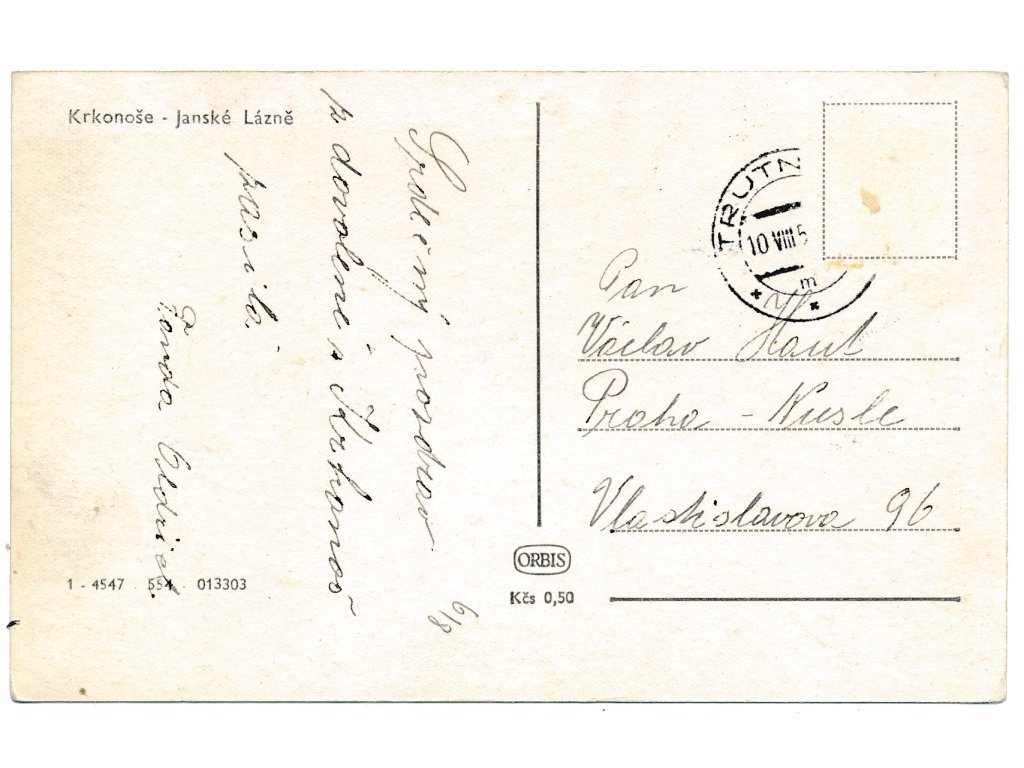 Krkonoše - Janské Lázně
Srdečný pozdrav
z dovolené s Krkonoš
posílá
Fanda Oldřich.
6/8
1 - 4547 554 013303
ORBIS
Kčs 0,50
TRUTN
10 VIII 5
m
Pan
Václav Haut
Praha - Nusle
Vlastislavova 96